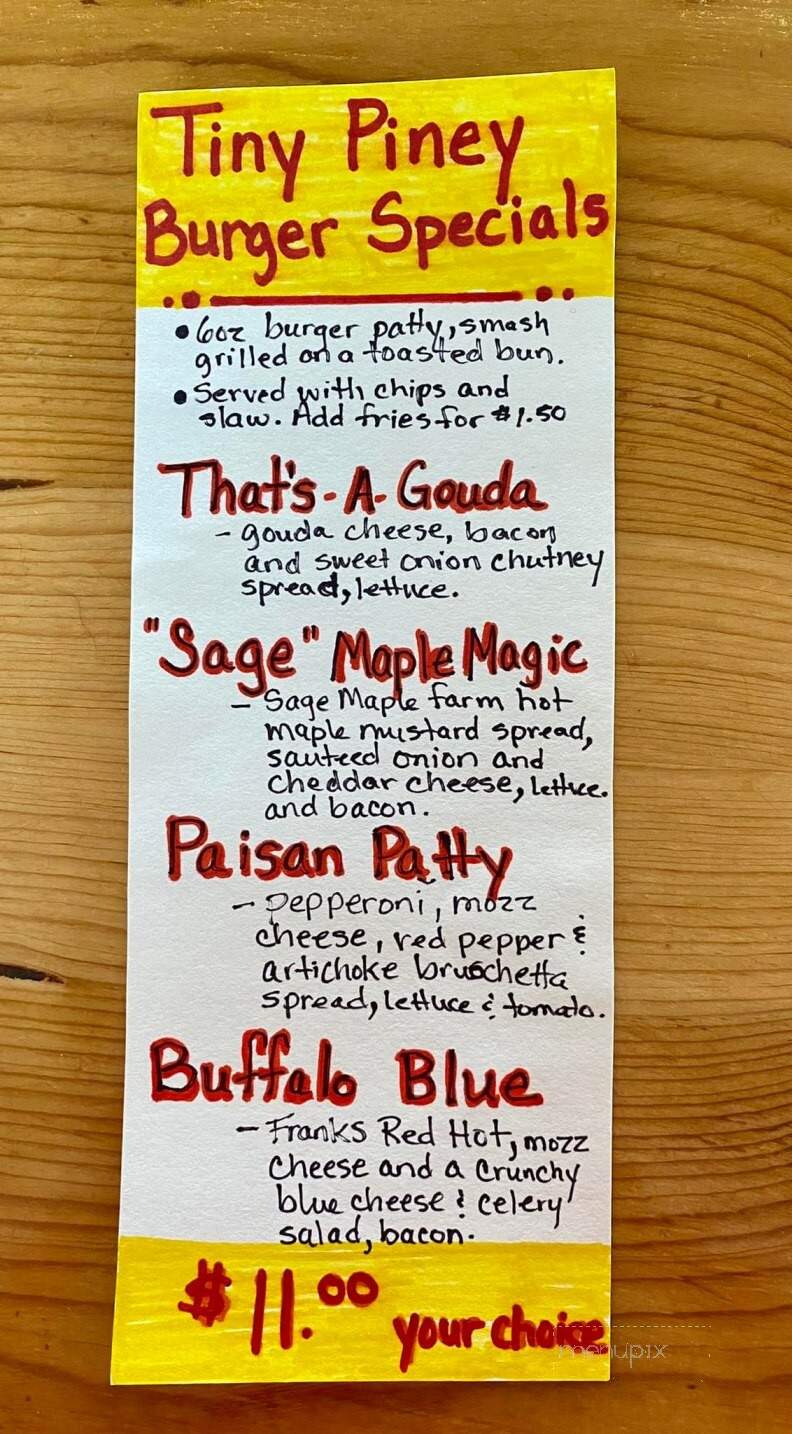 Tiny Piney
Burger Specials
• 6oz burger patty, smash
grilled on a toasted bun.
• Served with chips and
slaw. Add fries for $1.50
That's-A-Gouda
- gouda cheese, bacon
and sweet onion chutney
spread, lettuce.
"Sage" Maple Magic
- Sage Maple farm hot
maple mustard spread,
sauteed onion and
cheddar cheese, lettuce.
and bacon.
Paisan Patty
- pepperoni, mozz
cheese, red pepper &
artichoke bruschetta
spread, lettuce & tomato.
Buffalo Blue
- Franks Red Hot, mozz
cheese and a crunchy
blue cheese & celery
salad, bacon.
$11.00 your choice
menupix